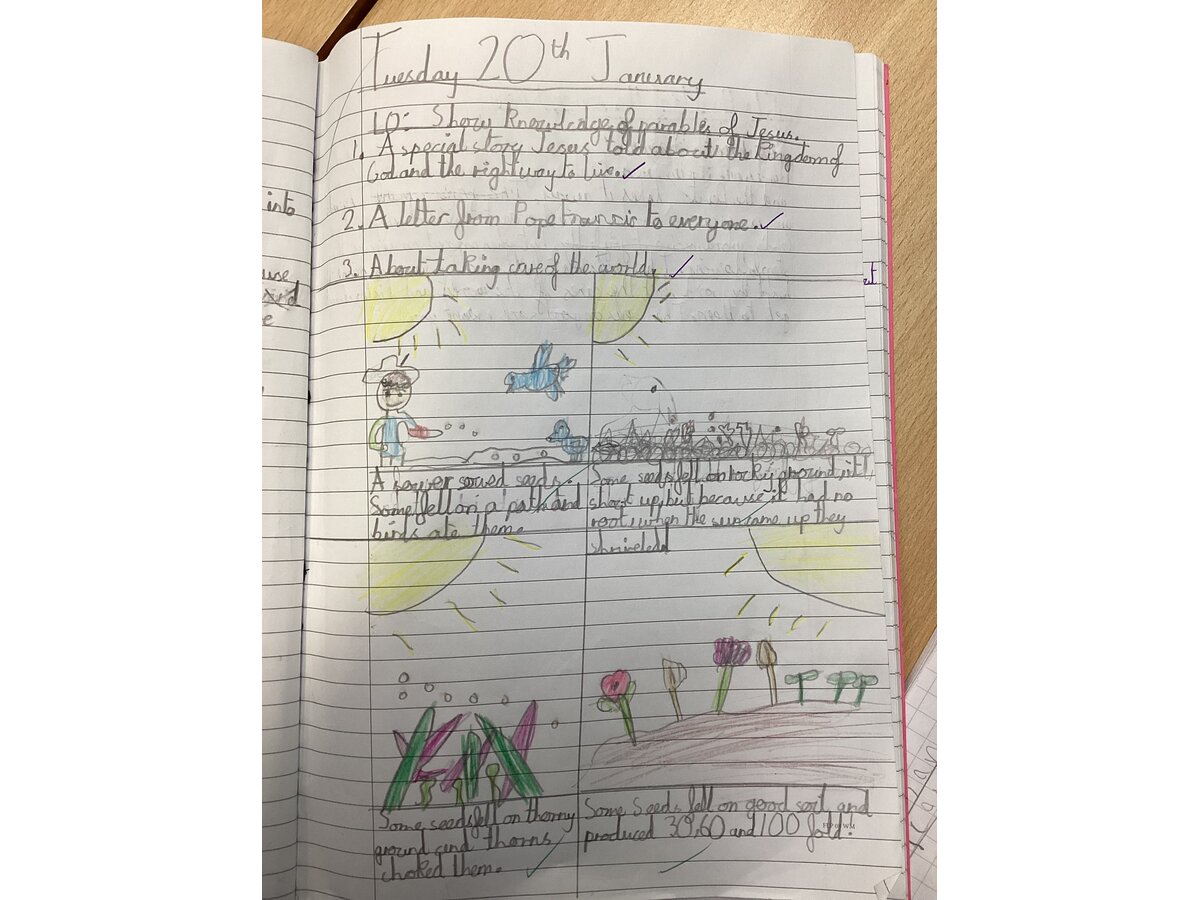 Tuesday 20th January
LO: Show knowledge of parables of Jesus.
1. A special story Jesus told about the Kingdom of
God and the right way to live.
2. A letter from Pope Francis to everyone.
3. About taking care of the world.
into
use
e
ut
A sower sowed seeds.
Some fell on a path and
birds ate them.
Some seeds fell on rocky ground, it
shoot up, but because it had no
root, when the sun came up they
shriveledd
Some seeds fell on thorny
ground and thorns
choked them.
Some Seeds fell on good soil and
produced 30,60 and 100 fold!